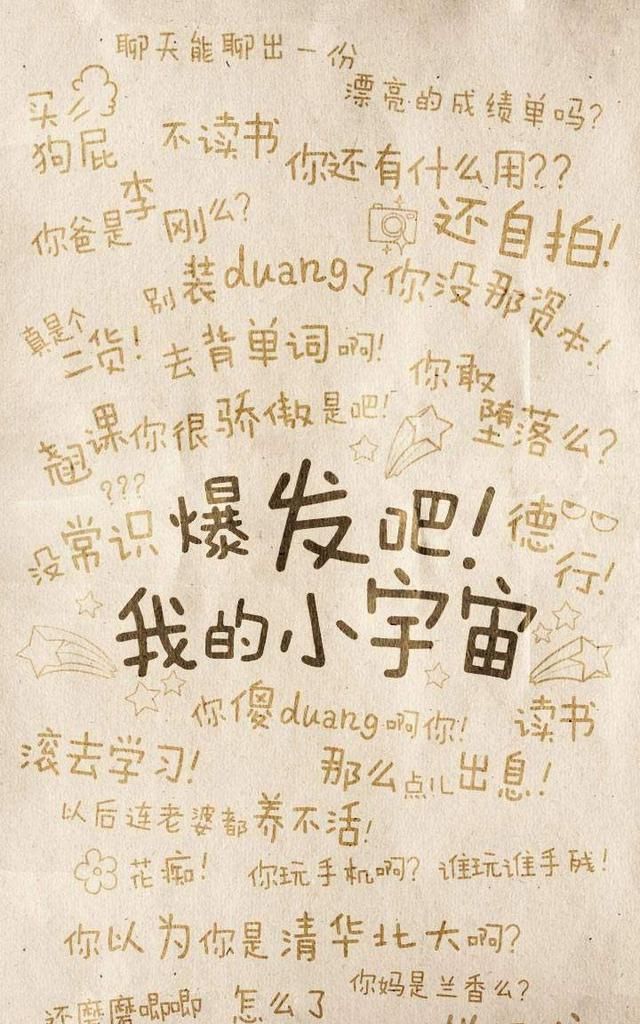 聊天能聊出一份
漂亮的成绩单吗?
买
狗屁
不读书
你还有什么用??
你爸是李刚么?
还自拍!
别装duang了你没那资本!
真是个
二货!
去背单词啊!
你敢
堕落么?
翘课你很骄傲是吧!
???
没常识
爆发吧!
德
行!
我的小宇宙
你傻duang啊你!
读书
滚去学习!
那么点儿出息!
以后连老婆都养不活!
花痴!
你玩手机啊?
谁玩谁手残!
你以为你是清华北大啊?
你妈是兰香么?
还磨磨唧唧
怎么了